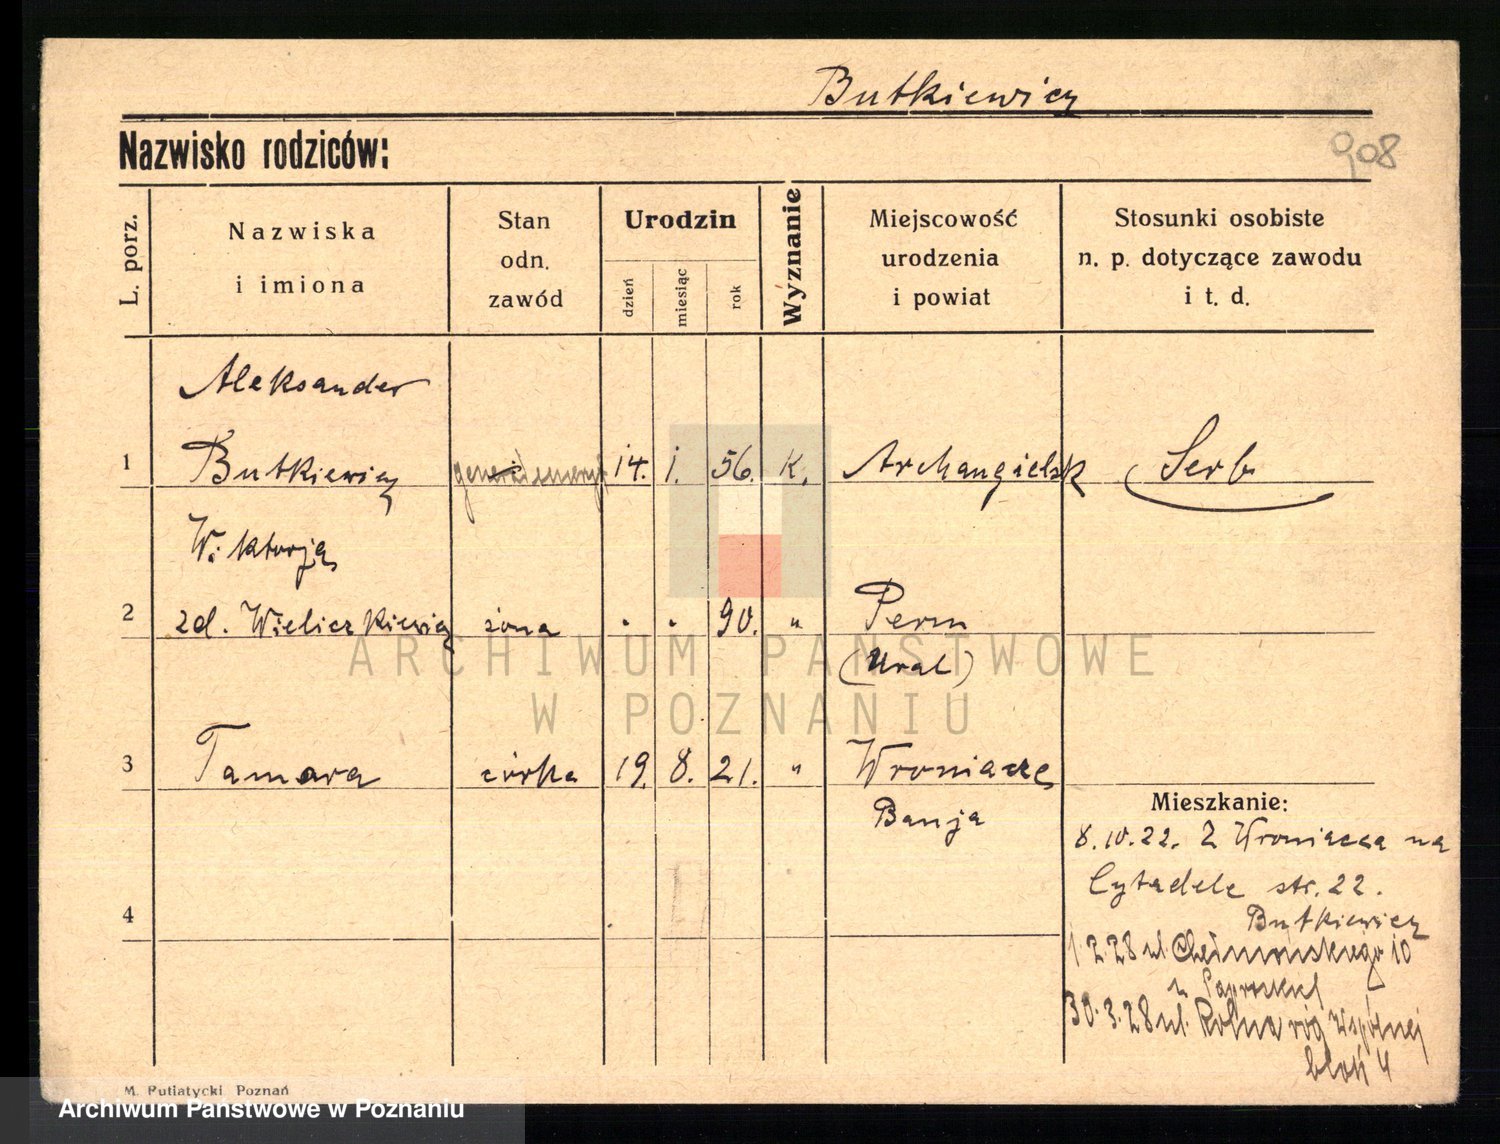 Butkiewicz
Nazwisko rodziców:
908
L. porz.
Nazwiska
i imiona
Stan
odn.
zawód
Urodzin
dzień
miesiąc
rok
Wyznanie
Miejscowość
urodzenia
i powiat
Stosunki osobiste
n. p. dotyczące zawodu
i t. d.
Aleksander
1 Butkiewicz 14. 1. 56. K. Archangielsk Serb
Wiktorja
2 zd. Wieliczkiewicz żona . . 90. " Perm
(Ural)
3 Tamara córka 19. 8. 21. " Wroniacze
Banja
Mieszkanie:
8.10.22. Z Wroniacza na
Cytadele str. 22.
4
Butkiewicz
1.2.28 ul. Chełmońskiego 10
30.3.28 ul. Rolna róg Wspólnej
blok 4
M. Putiatycki, Poznań
ARCHIWUM PAŃSTWOWE
W POZNANIU
Archiwum Państwowe w Poznaniu